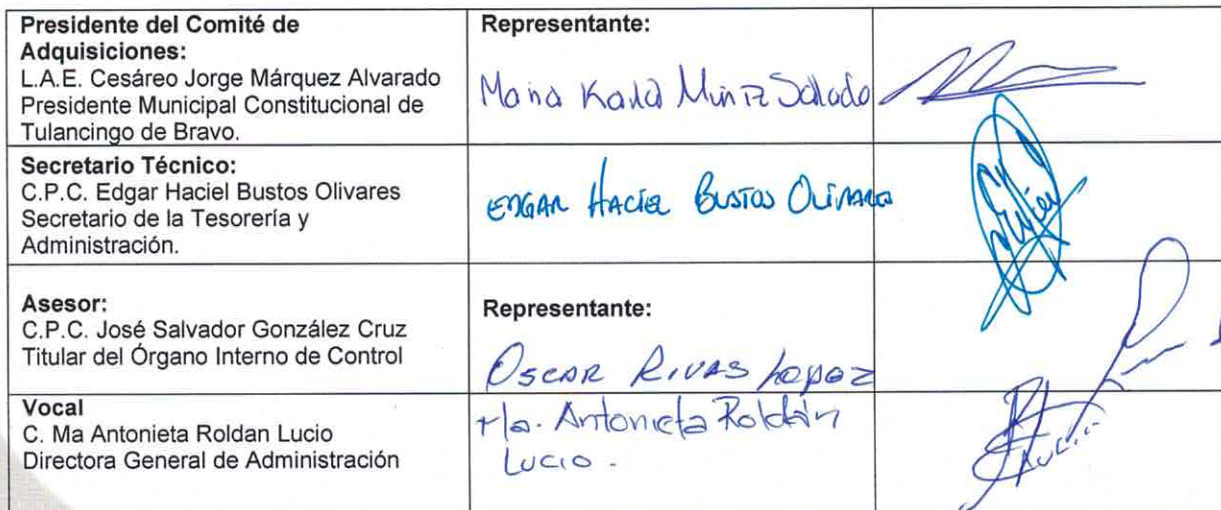 Presidente del Comité de
Adquisiciones:
L.A.E. Cesáreo Jorge Márquez Alvarado
Presidente Municipal Constitucional de
Tulancingo de Bravo.
Representante:
Maria Karla Muñiz Salado
Secretario Técnico:
C.P.C. Edgar Haciel Bustos Olivares
Secretario de la Tesorería y
Administración.
EDGAR HACIEL BUSTOS OLIVARES
Asesor:
C.P.C. José Salvador González Cruz
Titular del Órgano Interno de Control
Representante:
OSCAR RIVAS LOPEZ
Vocal
C. Ma Antonieta Roldan Lucio
Directora General de Administración
Ma. Antonieta Roldán
Lucio.